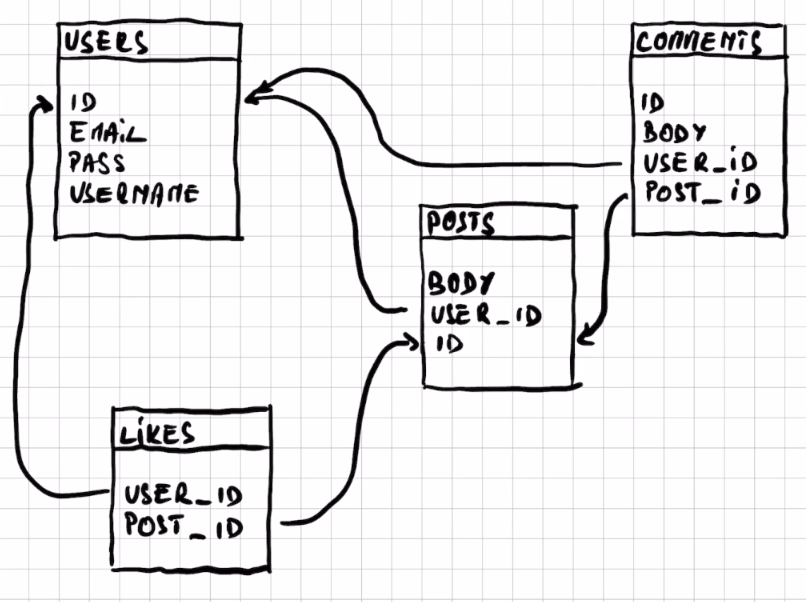 USERS
ID
EMAIL
PASS
USERNAME
COMMENTS
ID
BODY
USER_ID
POST_ID
POSTS
BODY
USER_ID
ID
LIKES
USER_ID
POST_ID